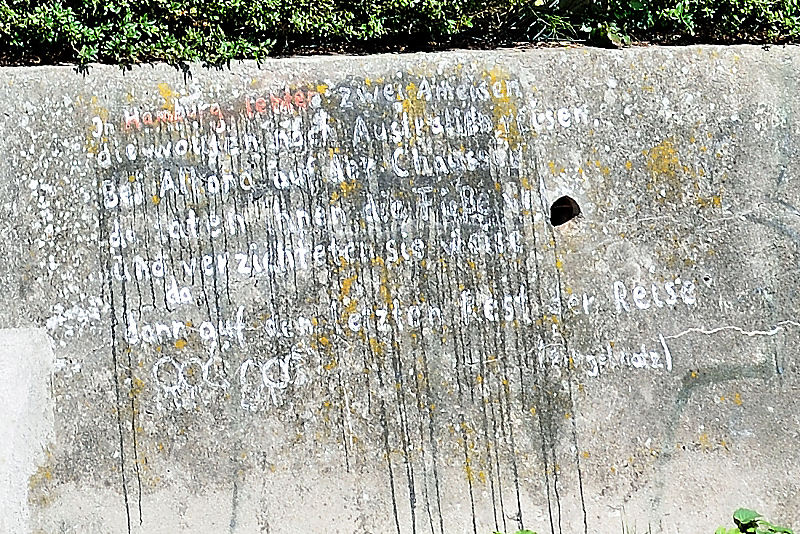 In Hamburg lebten zwei Ameisen,
die wollten nach Australien reisen.
Bei Altona auf der Chaussee
da taten ihnen die Füße
und verzichteten sie weise
da
dann auf den letzten Rest der Reise
(Ringelnatz)